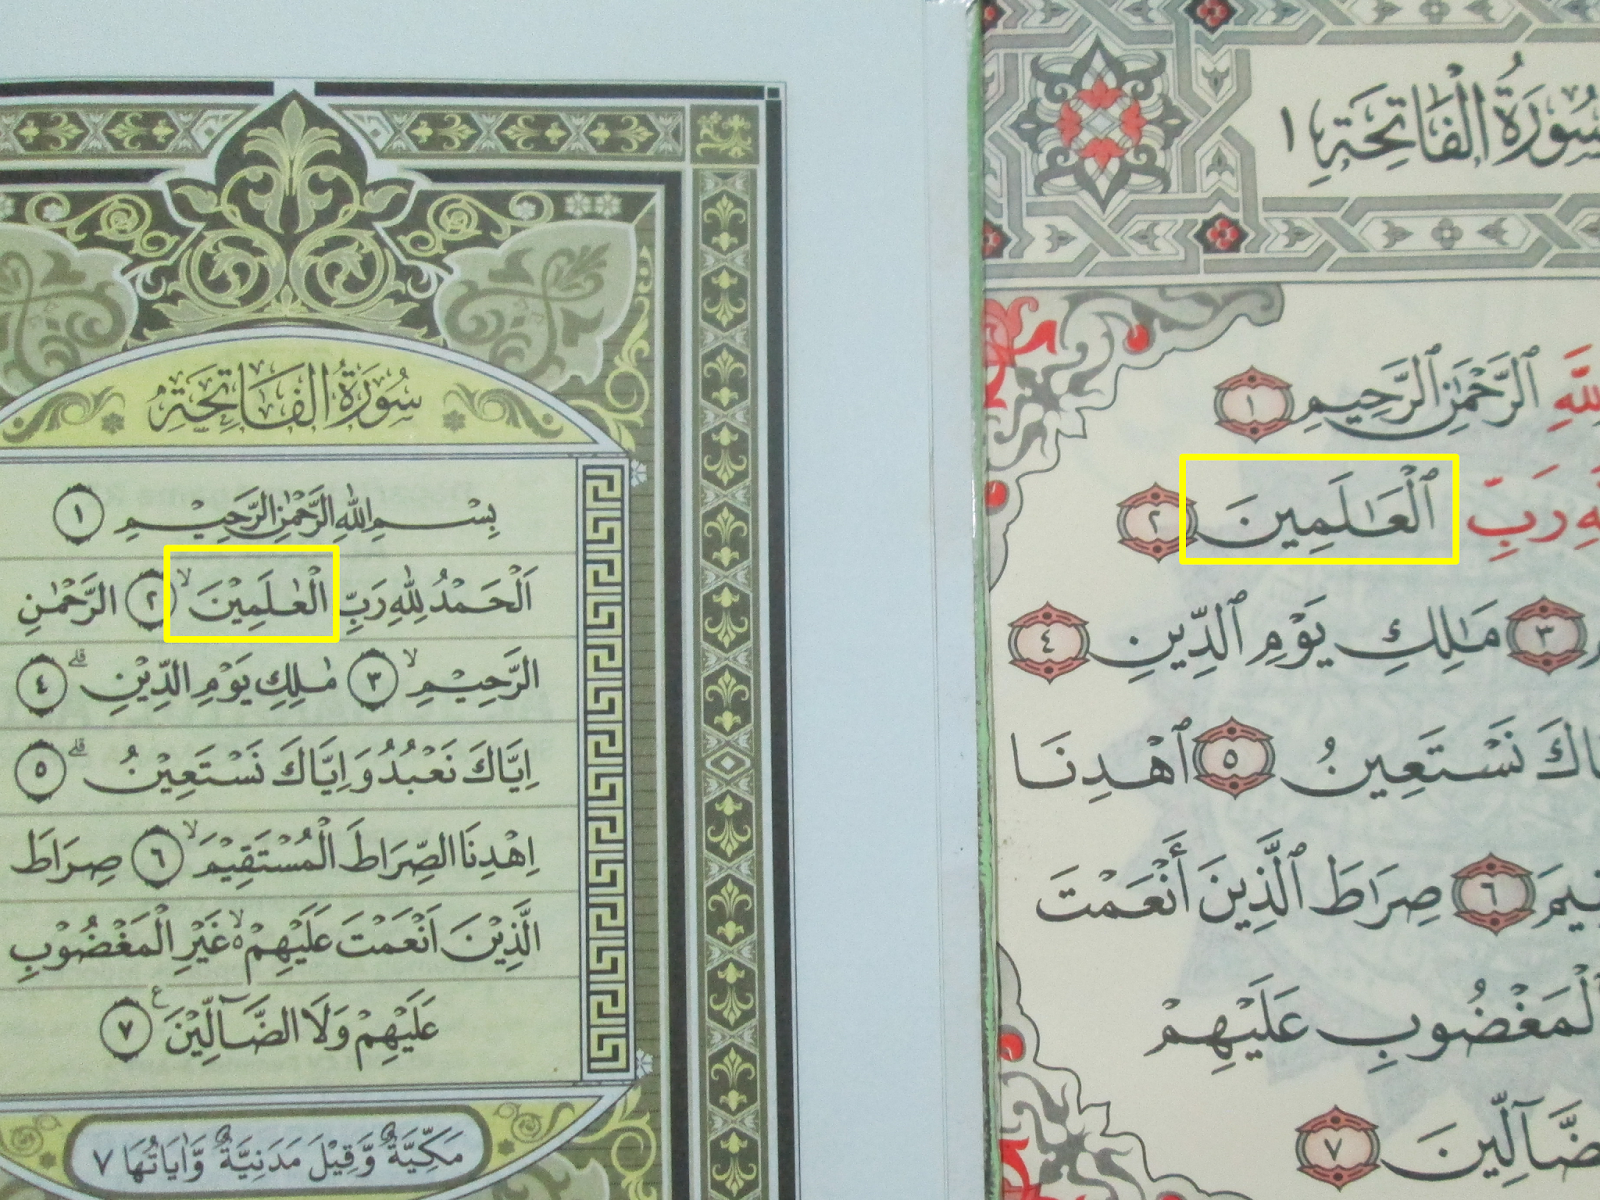 سُورَةُ الْفَاتِحَةِ
بِسْمِ اللّٰهِ الرَّحْمٰنِ الرَّحِيْمِ ١
اَلْحَمْدُ لِلّٰهِ رَبِّ الْعٰلَمِيْنَۙ ٢ الرَّحْمٰنِ
الرَّحِيْمِۙ ٣ مٰلِكِ يَوْمِ الدِّيْنِۗ ٤
اِيَّاكَ نَعْبُدُ وَاِيَّاكَ نَسْتَعِيْنُۗ ٥
اِهْدِنَا الصِّرَاطَ الْمُسْتَقِيْمَۙ ٦ صِرَاطَ
الَّذِيْنَ اَنْعَمْتَ عَلَيْهِمْ ەۙ غَيْرِ الْمَغْضُوْبِ
عَلَيْهِمْ وَلَا الضَّاۤلِّيْنَࣖ ٧
مَكِّيَّةٌ وَّقِيْلَ مَدَنِيَّةٌ وَّاٰيَاتُهَا ٧
سُورَةُ الْفَاتِحَةِ ١
ٱلرَّحْمَٰنِ ٱلرَّحِيمِ ١
رَبِّ ٱلْعَٰلَمِينَ ٢
٣ مَٰلِكِ يَوْمِ ٱلدِّينِ ٤
نَسْتَعِينُ ٥ ٱهْدِنَا
٦ صِرَٰطَ ٱلَّذِينَ أَنْعَمْتَ
ٱلْمَغْضُوبِ عَلَيْهِمْ
٧